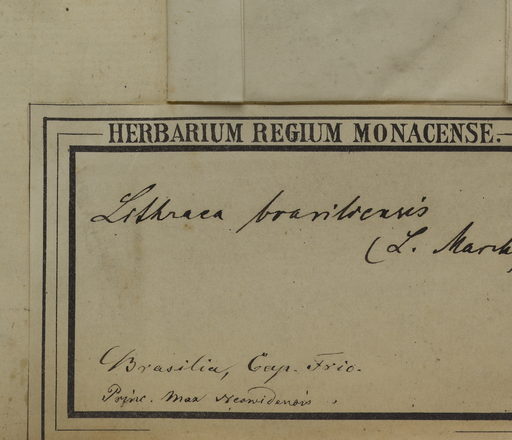 HERBARIUM REGIUM MONACENSE.
Lithraea brasiliensis
(L. March
Brasilia, Cap. Frio.
Princ. Max Neowidensis.